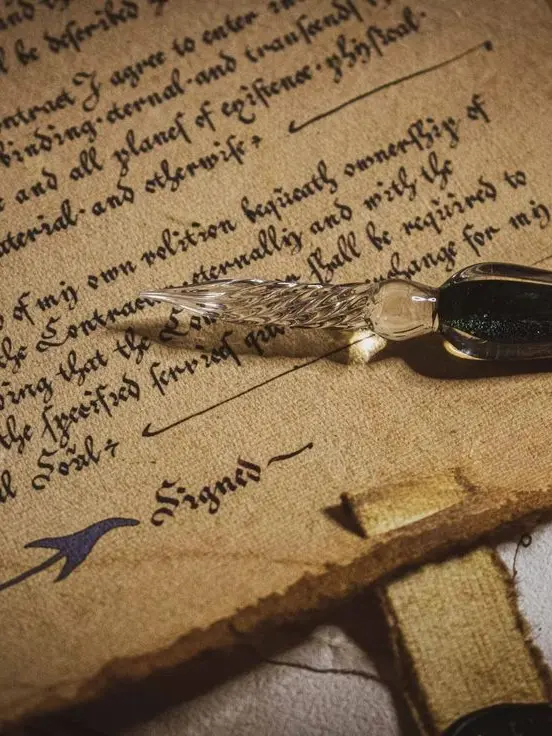 be described
contract I agree to enter
binding·eternal·and transcends
and all planes of existence·physical·
material·and otherwise
of my own volition bequeath ownership of
the Contract eternally and with the
that the shall be required to
the specified services exchange for my
Soul
Signed